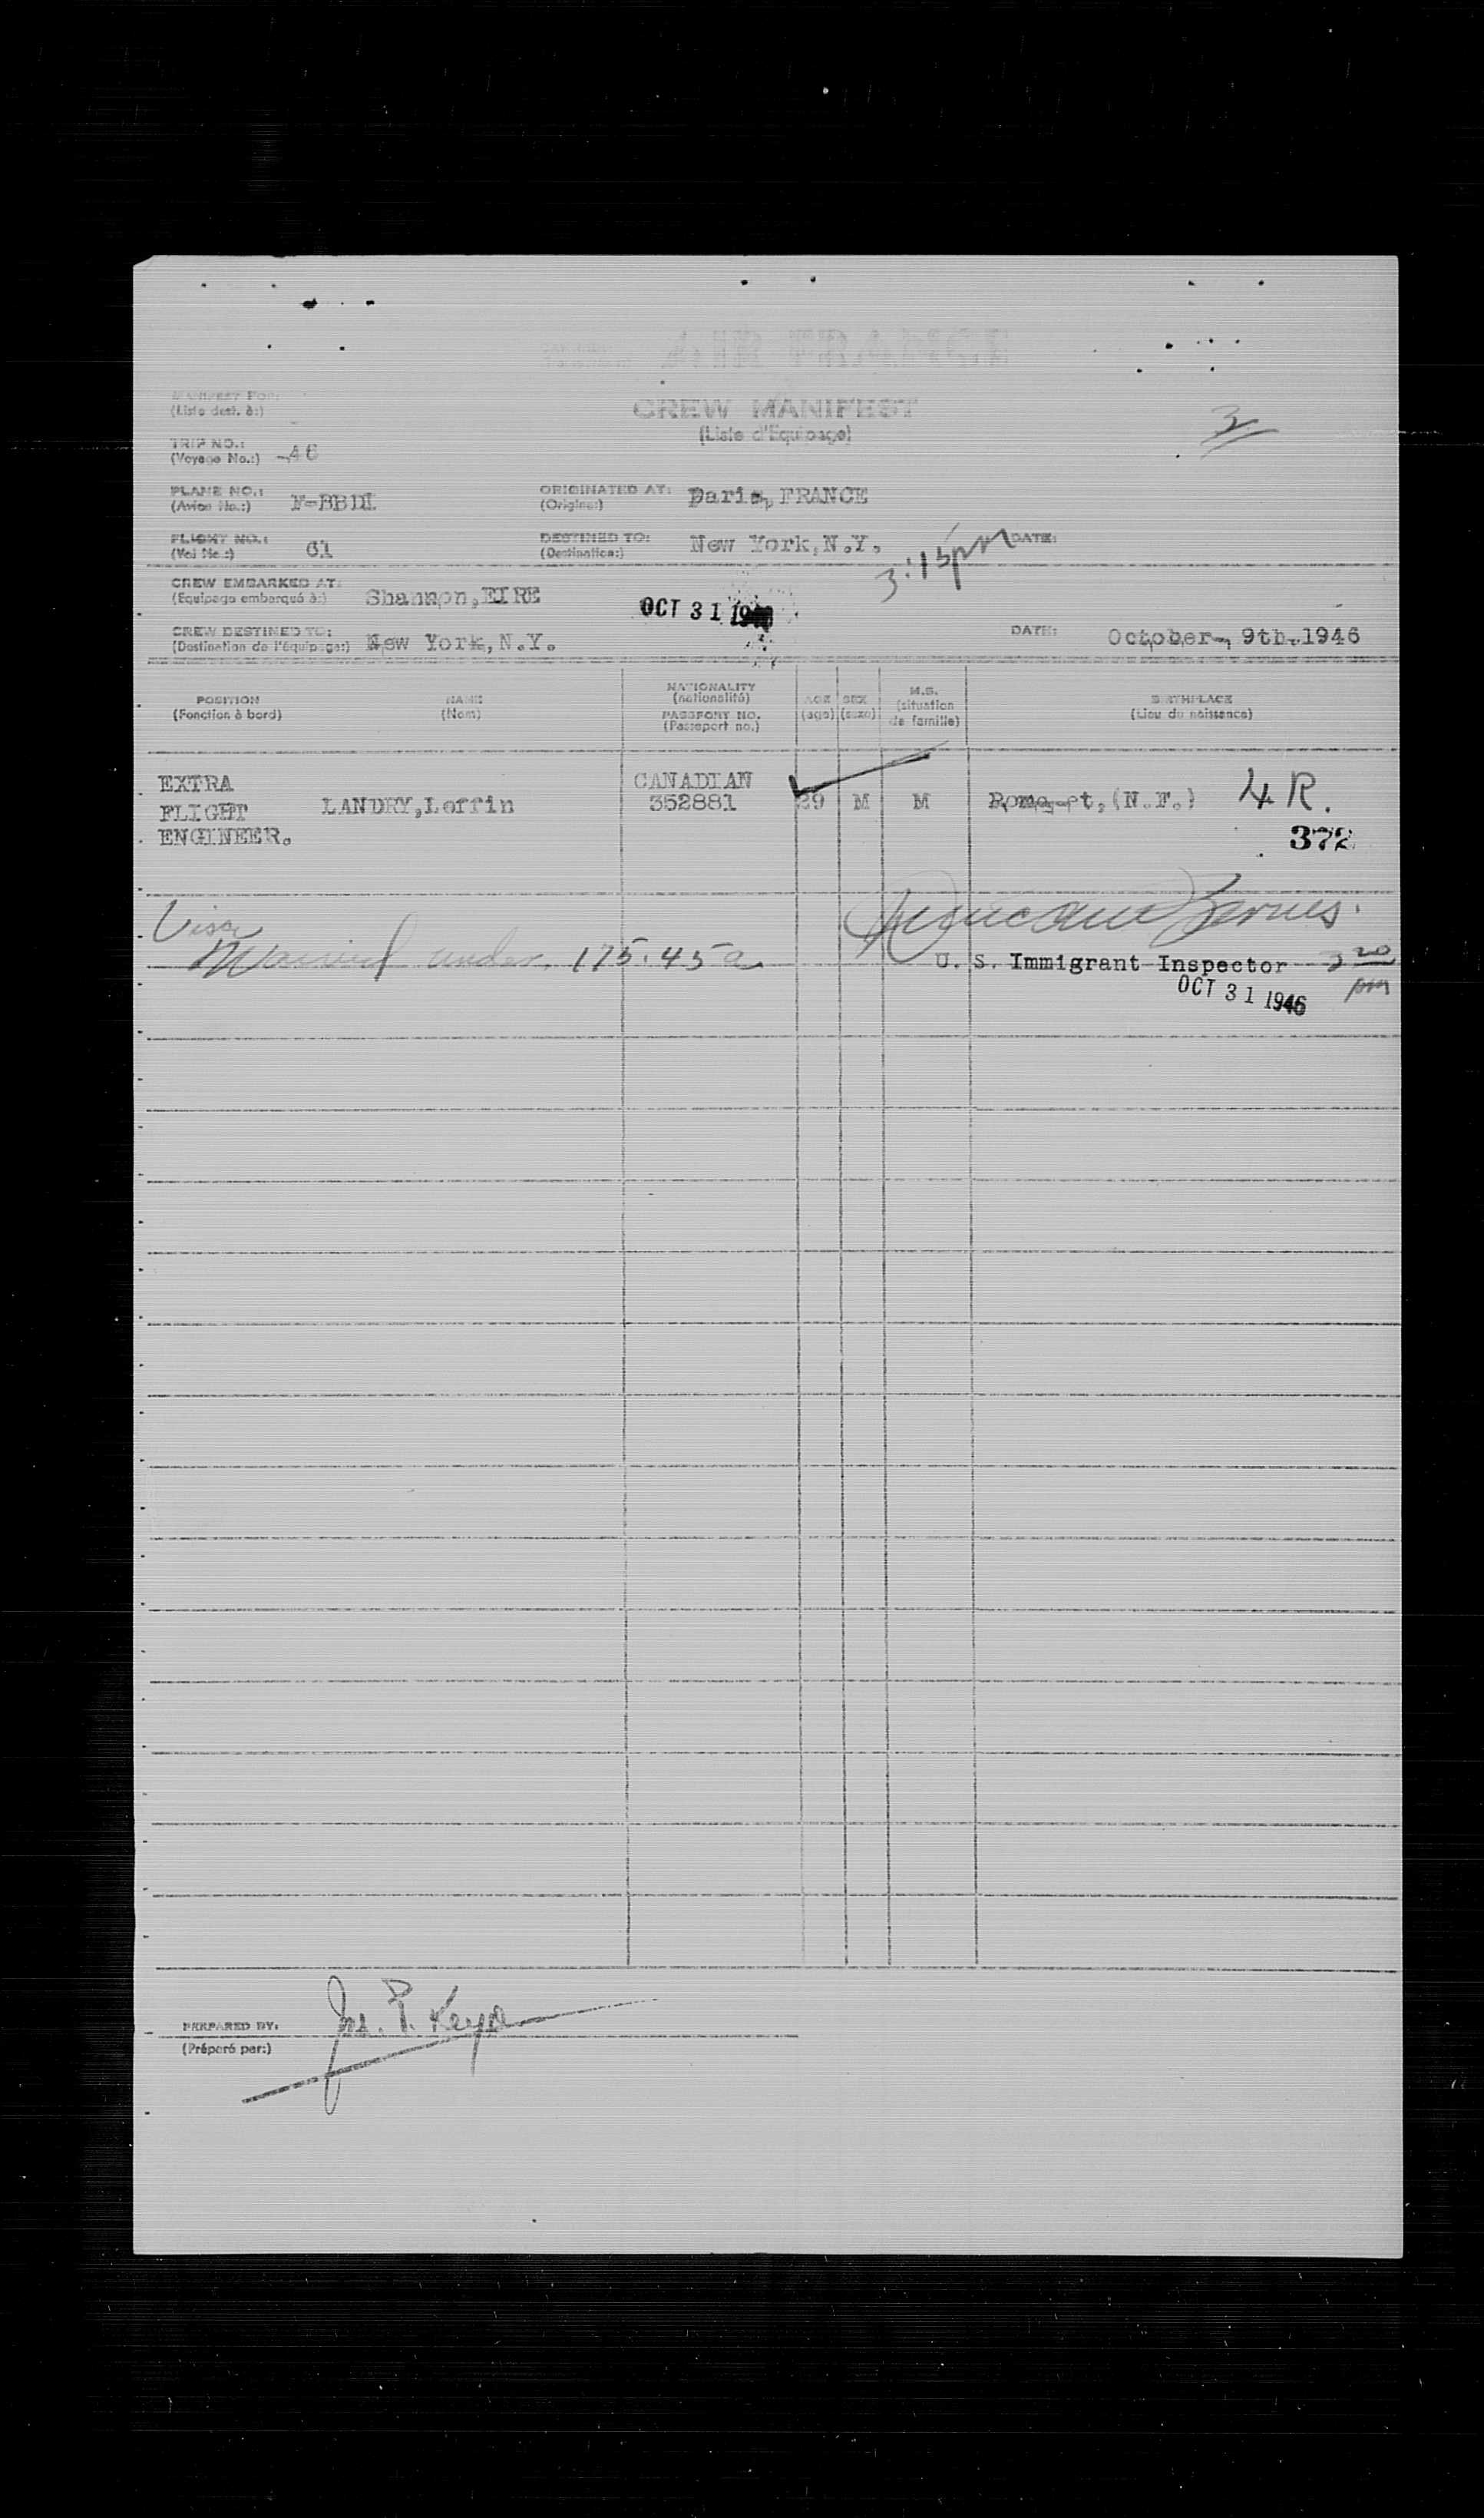 AIR FRANCE
MANIFEST FOR:
(Liste dest. à:)
CREW MANIFEST
(Liste d'Equipage)
TRIP NO.:
(Voyage No.:) -46
PLANE NO.:
(Avion No.:) F-BBDI
ORIGINATED AT: Paris, FRANCE
(Origine:)
FLIGHT NO.:
(Vol No.:) 61
DESTINED TO: New York, N.Y.
(Destination:)
3:15pm
DATE:
CREW EMBARKED AT:
(Equipage embarqué à:) Shannon, EIRE
OCT 31
CREW DESTINED TO:
(Destination de l'équipage:) New York, N.Y.
DATE: October-, 9th.1946
POSITION
(Fonction à bord)
NAME
(Nom)
NATIONALITY
(nationalité)
PASSPORT NO.
(Passeport no.)
AGE
(age)
SEX
(sexe)
M.S.
(situation
de famille)
BIRTHPLACE
(Lieu de naissance)
EXTRA
FLIGHT
ENGINEER.
LANDRY, Leffin
CANADIAN
352881
29 M M
(N.F.)
4 R.
372
Visa
Waived under 175.45a
U. S. Immigrant Inspector 3 20
pm
OCT 31 1946
PREPARED BY:
(Préparé par:)